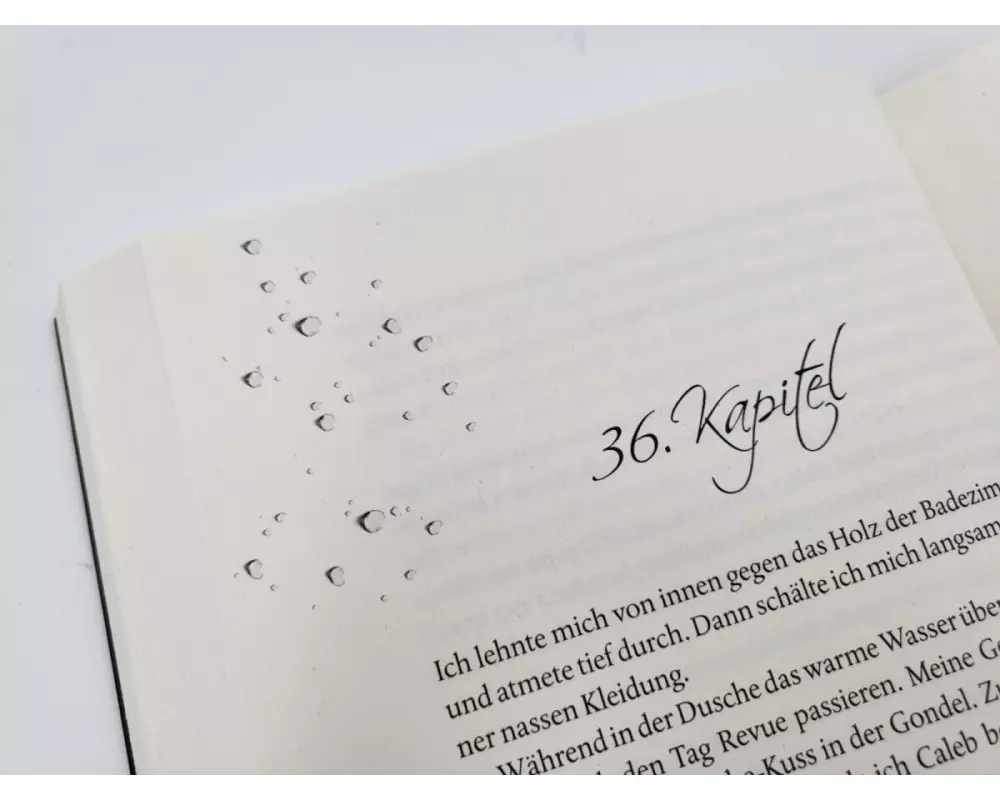 36. Kapitel
Ich lehnte mich von innen gegen das Holz der Badezim
und atmete tief durch. Dann schälte ich mich langsam
ner nassen Kleidung.
Während in der Dusche das warme Wasser über
den Tag Revue passieren. Meine Ge
-Kuss in der Gondel. Zu
ich Caleb be